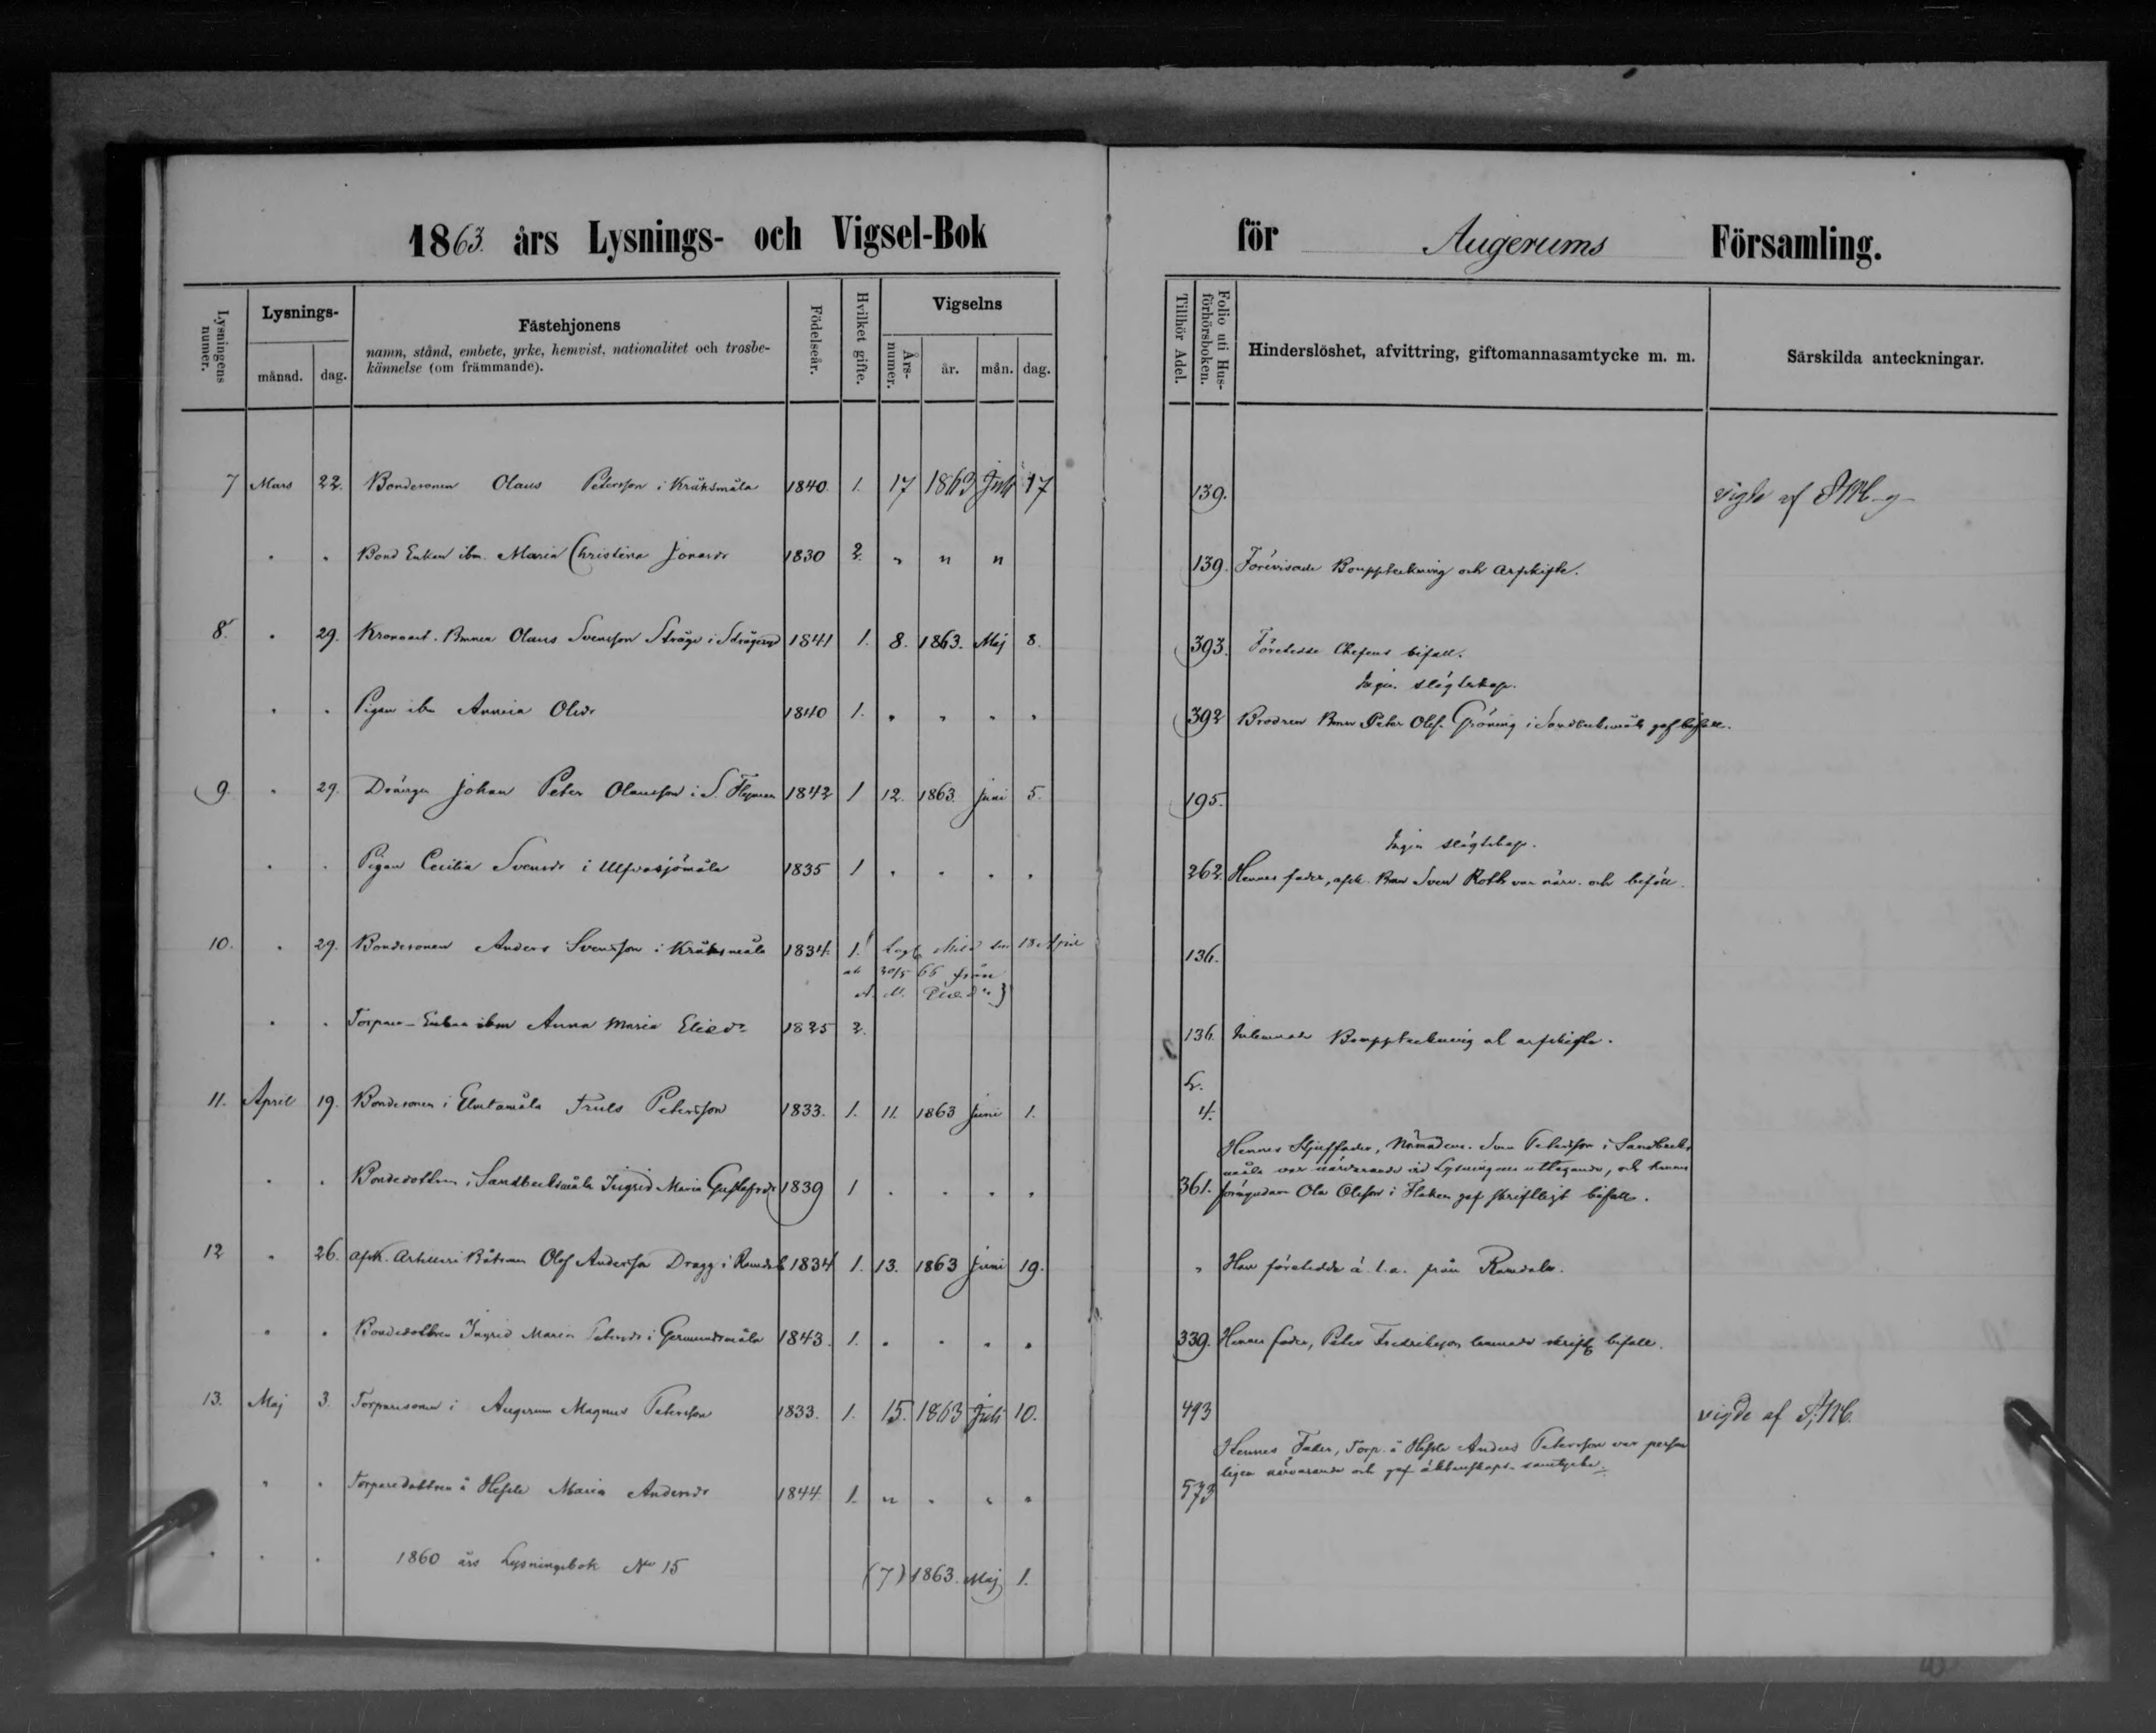 1863. års Lysnings- och Vigsel-Bok för Augerums Församling.
Lysningens numer.
Lysnings-
månad. dag.
Fästehjonens
namn, stånd, embete, yrke, hemvist, nationalitet och trosbe-
kännelse (om främmande).
Födelseår.
Hvilket gifte.
Vigselns
Års-numer. år. mån. dag.
Tillhör Adel.
Folio uti Hus-förhörsboken.
Hinderslöshet, afvittring, giftomannasamtycke m. m.
Särskilda anteckningar.
7 Mars 22. Bondesonen Olaus Petersson i Kråksmåla 1840. 1. 17 1863 Juli 17 139. vigde af
" " Bond Enkan ibm. Maria Christina Jonasdr 1830 2. " " " 139. Förevisade Bouppteckning och arfskifte.
8. " 29. Olaus Svensson Stråge i 1841 1. 8. 1863. Maj 8. 393. Företedde Chefens bifall.
Ingen slägtskap.
" " Pigan ibm Olsdr 1840 1. " " " " 392 Brodren Bmn Peter Olss. Gröning i Sandbecksmåla gaf bifall.
9. " 29. Drängen Johan Peter Olausson i S. 1842 1 12. 1863. Juni 5. 195.
Ingen slägtskap.
" " Pigan Cecilia Svensdr i Ulfvasjömåla 1835 1 " " " " 262. Hennes fader, afsk. Bmn Sven Roth var närv. och biföll.
10. " 29. Bondesonen Anders Svensson i Kråksmåla 1834. 1. den 18 April 136.
30/5 66 från
" " Torpare-Enkan ibm Anna Maria Eliedr 1825 2. 136. Bouppteckning at arfskifte.
11. April 19. Bondesonen i Truls Petersson 1833. 1. 11. 1863 Juni 1. 4.
Hennes Styffader, Nämndem. Sven Petersson i Sandbecks-
måla var närvarande vid Lysningens uttagande, och hennes
" " Bondedottren i Sandbecksmåla Ingrid Maria Gustafsdr 1839 1 " " " " 361. förmyndare Ola Olsson i gaf skriftligt bifall.
12 " 26. afsk. Artilleri Båtsman Olof Andersson Dragg i Ramdala 1834 1. 13. 1863 Juni 19. " Han företedde från Ramdala.
" " Bondedottren Ingrid Maria Petersdr i Germundsmåla 1843. 1. " " " " 339. Hennes fader, Peter Fredriksson lemnade skriftl. bifall.
13. Maj 3. Torparesonen i Augerum Magnus Petersson 1833. 1. 15. 1863 Juli 10. 493 vigde af
Hennes Fader, Torp. å Anders Petersson var person-
ligen närvarande och gaf äktenskaps-samtycke.
" " Torparedottren å Maria Andersdr 1844. 1. " " " " 573
" " " 1860 års Lysningsbok No 15 (7) 1863. Maj 1.